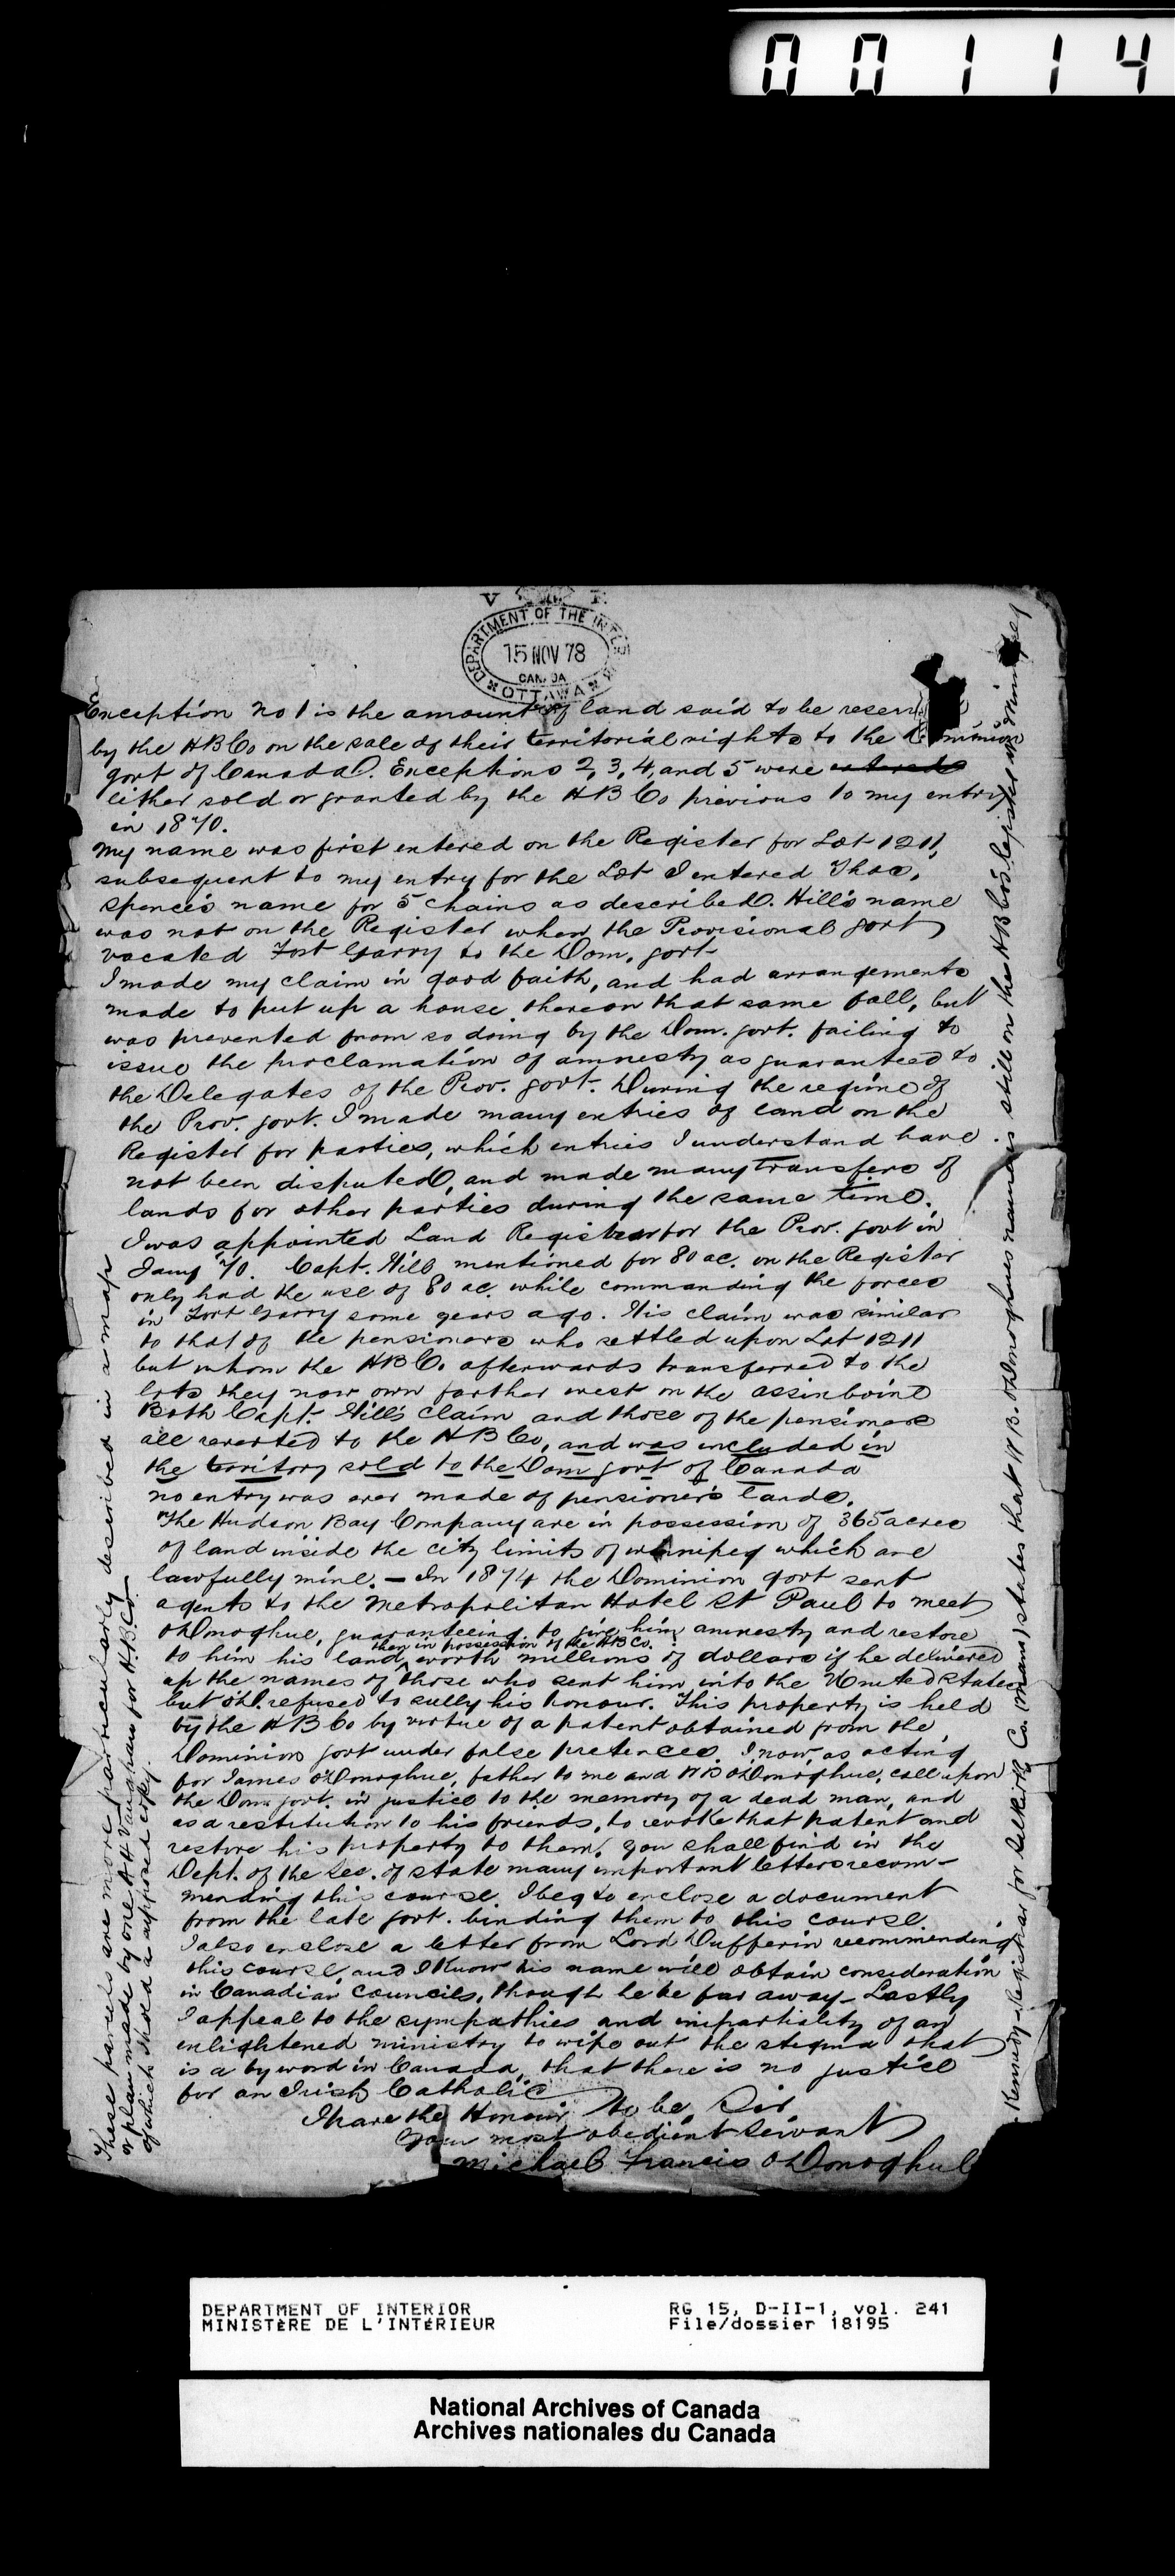 00114
V R
DEPARTMENT OF THE INTERIOR
15 NOV 78
CANADA
OTTAWA
Exception No 1 is the amount of land said to be reserved
by the HB Co on the sale of their territorial rights to the Dominion
govt of Canada. Exceptions 2, 3, 4, and 5 were entered
either sold or granted by the HB Co previous to my entry
in 1870.
My name was first entered on the Register for Lot 1211,
subsequent to my entry for the Lot I entered Thos.
Spence's name for 5 chains as described. Hill's name
was not on the Register when the Provisional govt
vacated Fort Garry to the Dom. govt.
I made my claim in good faith, and had arrangements
made to put up a house thereon that same fall, but
was prevented from so doing by the Dom. govt. failing to
issue the proclamation of amnesty as guaranteed to
the Delegates of the Prov. govt. During the regime of
the Prov. govt. I made many entries of land on the
Register for parties, which entries I understand have
not been disputed, and made many transfers of
lands for other parties during the same time.
I was appointed Land Registrar for the Prov. govt in
Jany '70. Capt. Hill mentioned for 80 ac. on the Register
only had the use of 80 ac. while commanding the forces
in Fort Garry some years ago. His claim was similar
to that of the pensioners who settled upon Lot 1211
but whom the HB Co. afterwards transferred to the
lots they now own farther west on the assinboine
Both Capt. Hill's claim and those of the pensioners
all reverted to the HB Co, and was included in
the territory sold to the Dom govt of Canada
no entry was ever made of pensioner's lands.
The Hudson Bay Company are in possession of 365 acres
of land inside the city limits of winnipeg which are
lawfully mine. — In 1874 the Dominion govt sent
agents to the Metropolitan Hotel St Paul to meet
O'Donoghue, guaranteeing to give him amnesty and restore
then in possession of the HB Co.
to him his land worth millions of dollars if he delivered
up the names of those who sent him into the United States
but O'D. refused to sully his honour. This property is held
by the HB Co by virtue of a patent obtained from the
Dominion govt under false pretences. I now, as acting
for James O'Donoghue, father to me and W B O'Donoghue, call upon
the Dom. govt. in justice to the memory of a dead man, and
as a restitution to his friends, to revoke that patent and
restore his property to them. You shall find in the
Dept. of the Sec. of state many important letters recom-
mending this course. I beg to enclose a document
from the late govt. binding them to this course.
I also enclose a letter from Lord Dufferin recommending
this course, and I know his name will obtain consideration
in Canadian Councils, though he be far away — Lastly
I appeal to the sympathies and impartiality of an
enlightened ministry to wipe out the stigma that
is a by word in Canada, that there is no justice
for an Irish Catholic
I have the Honour to be, Sir
Your most obedient Servant
Michael Francis O'Donoghue
These parcels are more particularly described in a map
or plan made by one A H Vaughan for H.B.Co.
of which I hold a supposed copy.
Kennedy Registrar for Selkirk Co. (Man) states that W B. O'Donoghue's name is still on the HB Co's Register in Winnipeg
DEPARTMENT OF INTERIOR
MINISTÈRE DE L'INTÉRIEUR
RG 15, D-II-1, vol. 241
File/dossier 18195
National Archives of Canada
Archives nationales du Canada